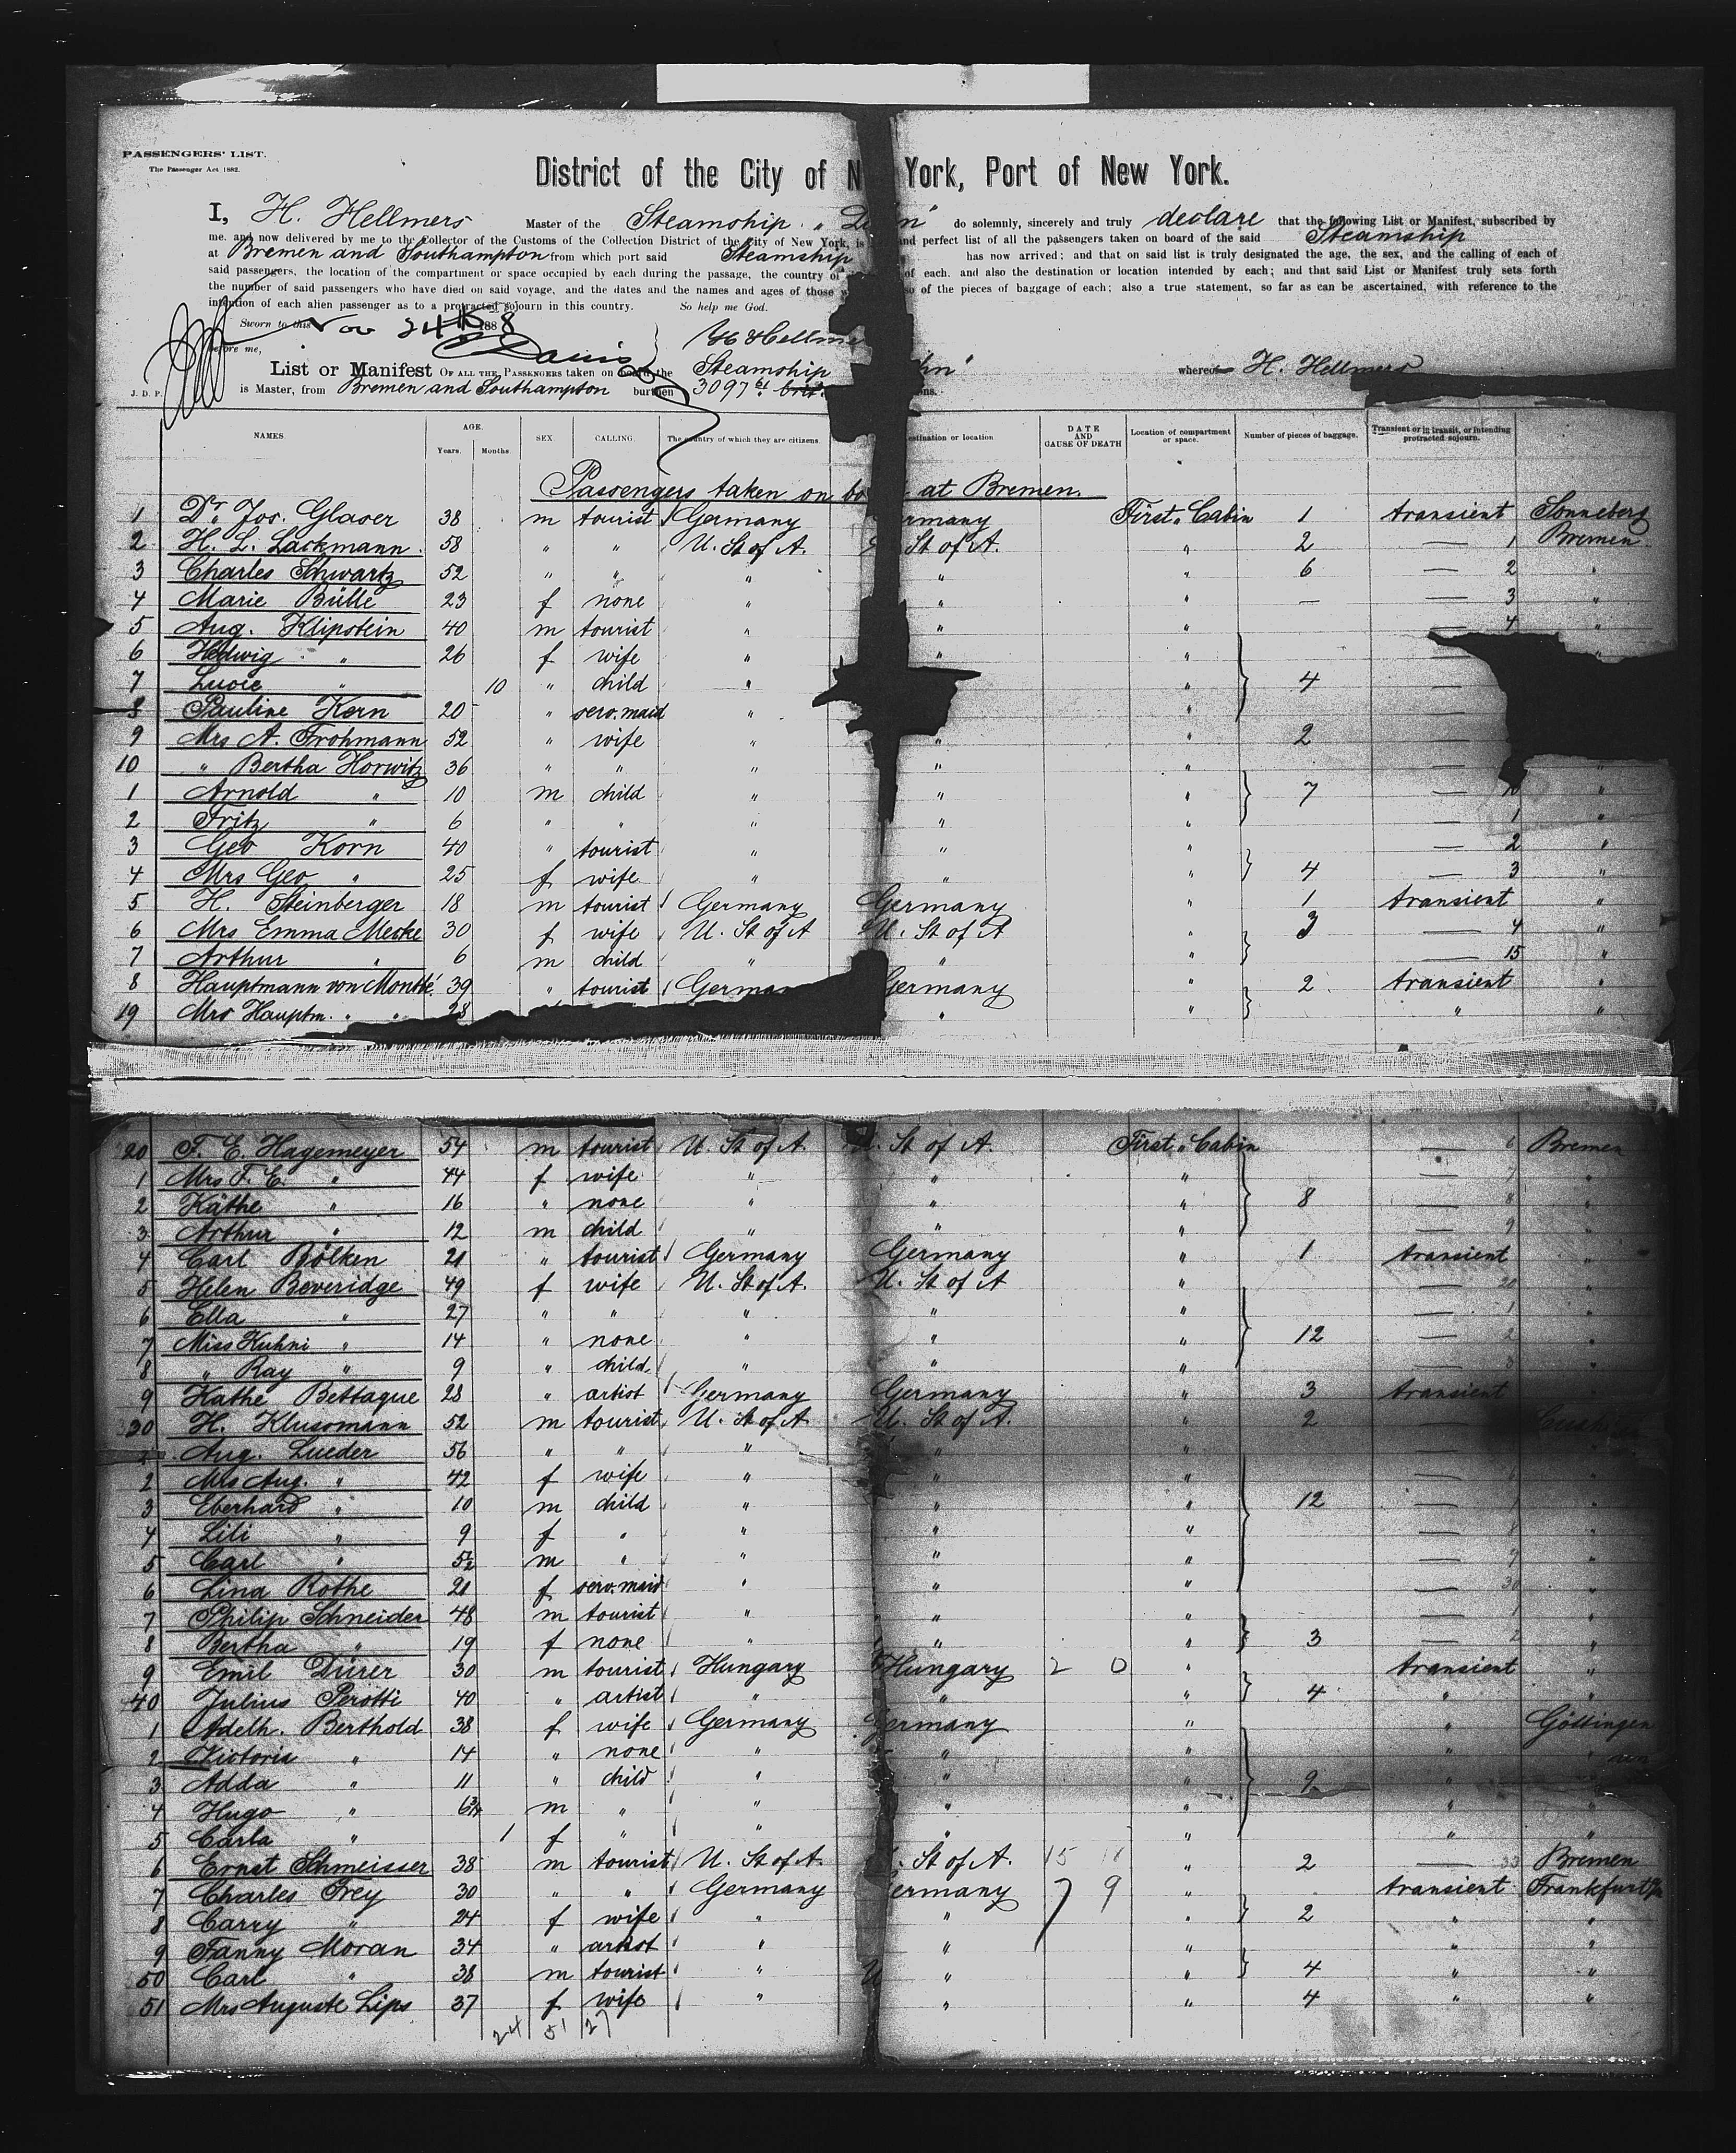 PASSENGERS' LIST.
The Passenger Act 1882.
District of the City of N York, Port of New York.
I, H. Hellmers Master of the Steamship " n" do solemnly, sincerely and truly declare that the following List or Manifest, subscribed by
me. and now delivered by me to the Collector of the Customs of the Collection District of the City of New York, is and perfect list of all the passengers taken on board of the said Steamship
at Bremen and Southampton from which port said Steamship has now arrived; and that on said list is truly designated the age, the sex, and the calling of each of
said passengers, the location of the compartment or space occupied by each during the passage, the country of of each. and also the destination or location intended by each; and that said List or Manifest truly sets forth
the number of said passengers who have died on said voyage, and the dates and the names and ages of those of the pieces of baggage of each; also a true statement, so far as can be ascertained, with reference to the
intention of each alien passenger as to a protracted sojourn in this country. So help me God.
Sworn to this Nov 24th 1888
before me, H Hellme
List or Manifest OF ALL THE PASSENGERS taken on board the Steamship hn" whereof H. Hellmers
J. D. P. is Master, from Bremen and Southampton burthen 3097 ns.
NAMES. AGE. Years. Months SEX CALLING. The country of which they are citizens. estination or location DATE AND CAUSE OF DEATH Location of compartment or space. Number of pieces of baggage. Transient or in transit, or intending protracted sojourn.
Passengers taken on bo at Bremen.
1 Dr. Jos. Glaser 38 m tourist Germany rmany First Cabin 1 transient Sonneberg
2 H. L. Lackmann 58 " " U. St of A. St of A. " 2 — 1 Bremen
3 Charles Schwartz 52 " " " " " 6 — 2 "
4 Marie Bülle 23 f none " " " — — 3 "
5 Aug. Klipstein 40 m tourist " " " — 4 "
6 Hedwig " 26 f wife " " " — "
7 Lucie " 10 " child " " 4 —
8 Pauline Kern 20 " serv. maid " " —
9 Mrs A. Frohmann 52 " wife " " " 2 —
10 " Bertha Horwitz 36 " " " " " — "
1 Arnold " 10 m child " " " 7 — 10 "
2 Fritz " 6 " " " " " — 1 "
3 Geo Korn 40 " tourist " " " — 2 "
4 Mrs Geo " 25 f wife " " " 4 — 3 "
5 H. Steinberger 18 m tourist Germany Germany " 1 transient "
6 Mrs Emma Mecke 30 f wife U. St of A U. St of A " 3 — 4 "
7 Arthur " 6 m child " " " — 15 "
8 Hauptmann von Monthé 39 " tourist German Germany " 2 transient "
19 Mrs Hauptm. " " 28 " " " "
20 F. E. Hagemeyer 54 m tourist U. St of A. St of A. First Cabin — 6 Bremen
1 Mrs F. E. " 44 f wife " " " — 7 "
2 Käthe " 16 " none " " " 8 — 8 "
3 Arthur " 12 m child " " " — 9 "
4 Carl Bölken 21 " tourist Germany Germany " 1 transient "
5 Helen Beveridge 49 f wife U. St of A. U. St of A " — 20 "
6 Ella " 27 " " " " " — 1 "
7 Miss Kuhni " 14 " none " " " 12 — 2 "
8 " Ray " 9 " child " " " — 3 "
9 Käthe Bettaque 28 " artist Germany Germany " 3 transient
30 H. Klussmann 52 m tourist U. St of A. U. St of A. " 2
Aug. Lueder 56 " " " " " —
2 Mrs Aug. " 42 f wife " " " —
3 Eberhard " 10 m child " " " 12 — "
4 Lili " 9 f " " " " — "
5 Carl " 5½ m " " " " — "
6 Lina Rothe 21 f serv. maid " " " — 30 "
7 Philip Schneider 48 m tourist " " " — 1 "
8 Bertha " 19 f none " " " 3 — 2 "
9 Emil Dürer 30 m tourist Hungary Hungary 2 0 " transient "
40 Julius Perotti 40 " artist " " " 4 " "
1 Adelh. Berthold 38 f wife Germany Germany " " Göttingen
2 Victoria " 14 " none " " " "
3 Adda " 11 " child " " " 9 "
4 Hugo " 6¾ m " " " " " "
5 Carla " 1 f " " " " " "
6 Ernst Schmeisser 38 m tourist U. St of A. St of A. 15 " 2 — 33 Bremen
7 Charles Frey 30 " " Germany ermany 7 9 " transient Frankfurt
8 Carry " 24 f wife " " " 2 " "
9 Fanny Moran 34 " artist " " " " "
50 Carl " 38 m tourist " " " 4 " "
51 Mrs Auguste Lips 37 f wife " " " 4 " "
24 51 27